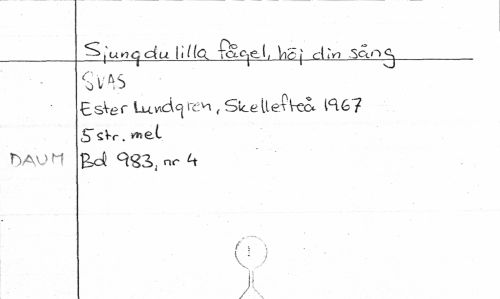 Sjung du lilla fågel, höj din sång
SVAS
Ester Lundgren, Skellefteå 1967
5 str. mel
DAUM Bd 983, nr 4